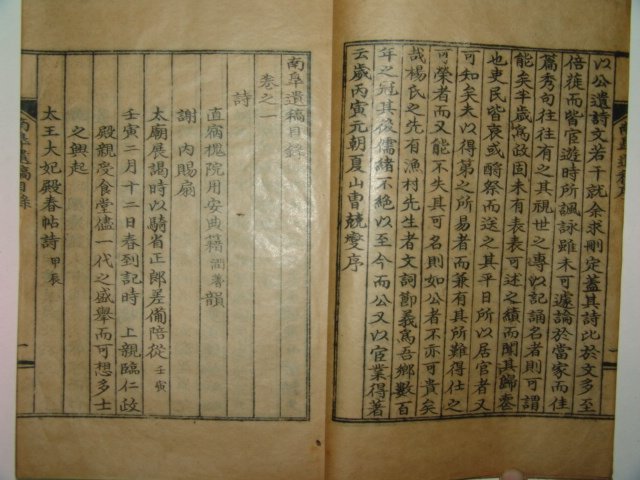 以公遺詩文若干就余求刪定蓋其詩比於文多至
倍蓰而皆宦遊時所諷詠雖未可遽論於當家而佳
篇秀句往往有之其視世之專以記誦名者則可謂
能矣半歲為政固未有表表可述之績而聞其歸雲
也吏民皆哀或酹祭而送之其平日所以居官者又
可知矣夫以得第之所易者而兼有其所難得仕之
可榮者而又能不失其可名則如公者不亦可貴矣
哉楊氏之先有漁村先生者文詞節義爲吾鄉數百
年之冠其後儒緒不絶以至今而公又以宦業得著
云歲丙寅元朝夏山曺兢燮序
南阜遺稿序
南阜遺稿目錄
卷之一
詩
直宿槐院用安典籍潤蓍韻
謝 內賜扇
太廟展謁時以騎省正郎差備陪從壬寅
壬寅二月十二日春到記時 上親臨仁政
殿親受食堂儘一代之盛舉而可想多士
之興起
太王大妃殿春帖詩甲辰
南阜遺稿目錄
一